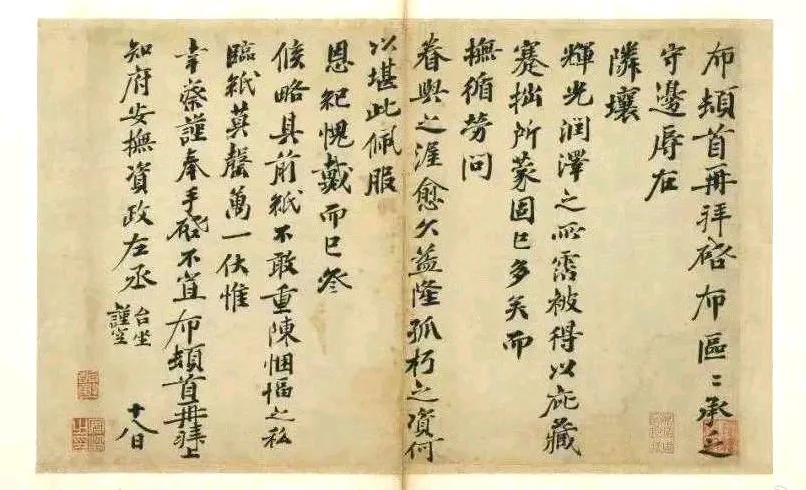 布頓首再拜啓布區〻承乏
守邊辱在
隣壤
輝光潤澤之所霑被得以庇藏
蹇拙所蒙固已多矣而
撫循勞問
眷與之渥愈久益隆孤朽之資何
以堪此佩服
恩紀愧戴而已參
候略具前紙不敢重陳悃愊之私
臨紙莫罄萬一伏惟
幸察謹奉手啓不宣布頓首再拜上
知府安撫資政左丞
台坐
謹空
十八日